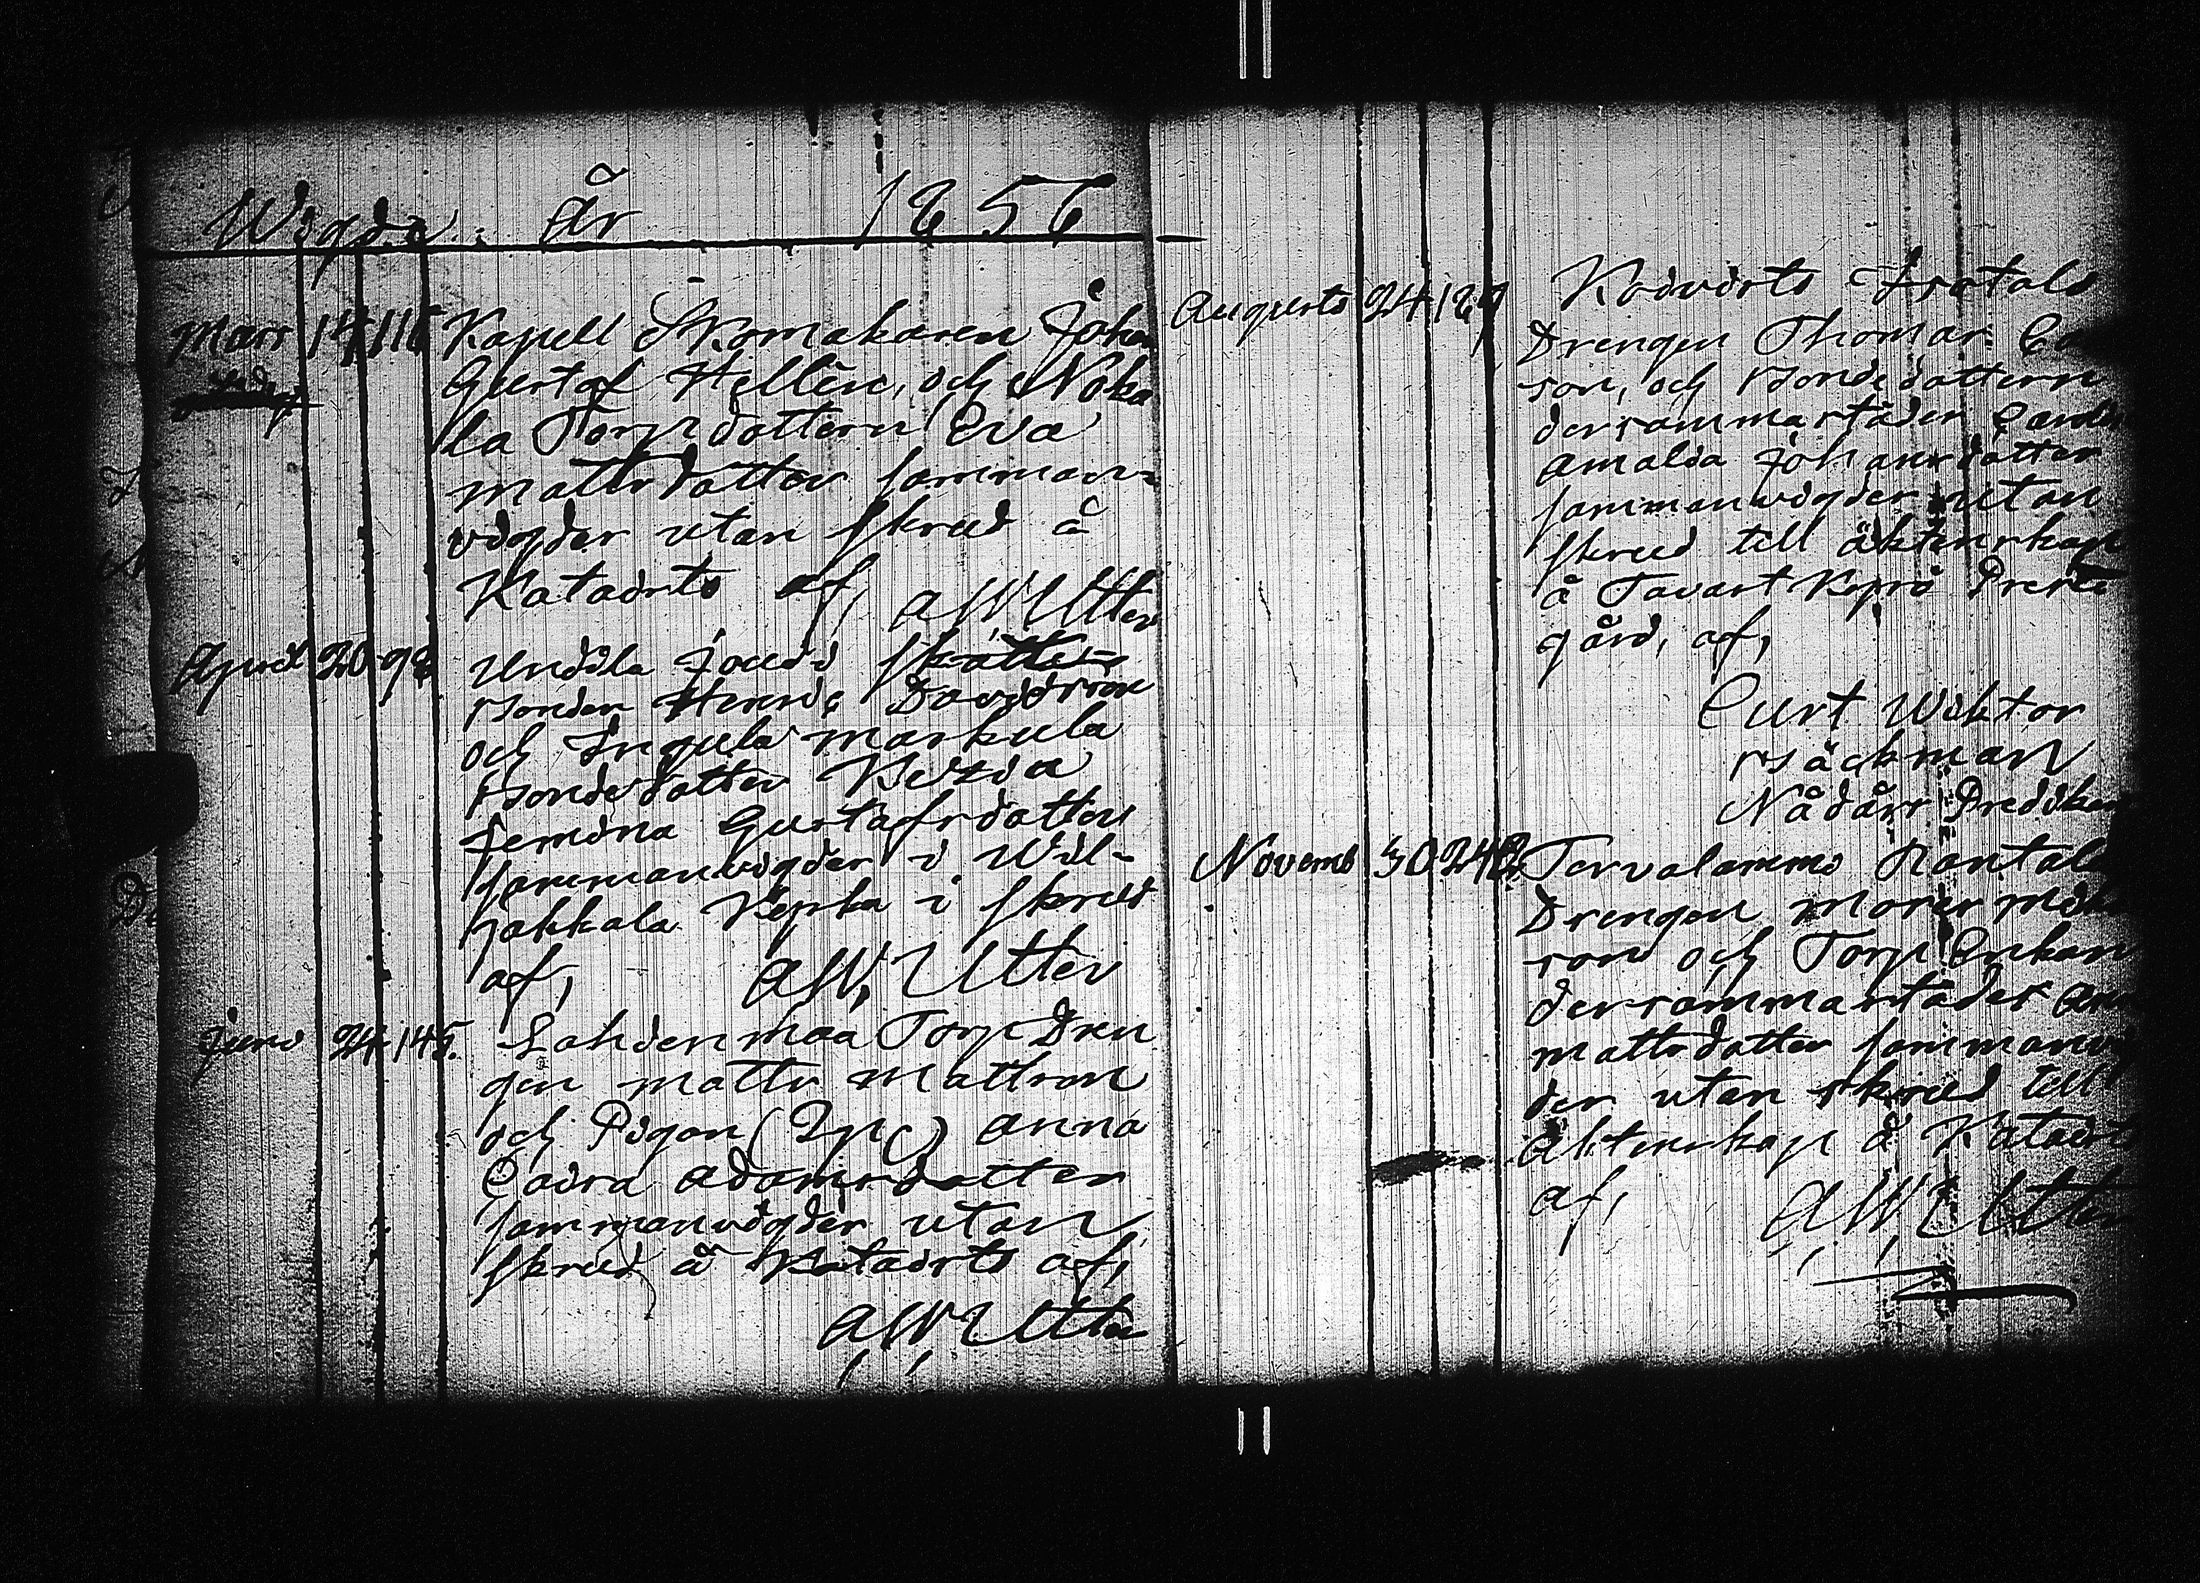 Wigde År 1856
Mars 14 116 Kapell Skomakaren Johan
Gustaf Hellen, och Noka
la Torpdottern Eva
Mattsdotter samman-
vigder utan skrud å
Kataisto af, A W Utter
April 20 98 Undila Joudi skatte-
Bonden Henric Davidsson
och Ingula Markula
Bondedotter Keizia
Jemina Gustafsdotter
sammanvigder i Wil-
jakkala Kyrka i skrud
af, A W, Utter
Juni 24 145. Lahdenmaa Torp Dren
gen Matts Mattson
och Pigan Anna
Caisa Adamsdotter
sammanvigder utan
skrud å Kataisto af,
A W Utter
Augusti 24
Drengen Thomas
son, och Bondedottern
dersammastäder
Amalia Johansdotter
sammanvigder utan
skrud till äktenskap
å Tavastkyrö Preste
gård, af,
Curt Wiktor
Bäckman
Nådårs Predikan
Novemb 30 Tervalammi
Drengen
son och Torp Enkan
dersammastädes
Mattsdotter sammanvig
der utan skrud till
Äktenskap å Kataist
af, A W Utter